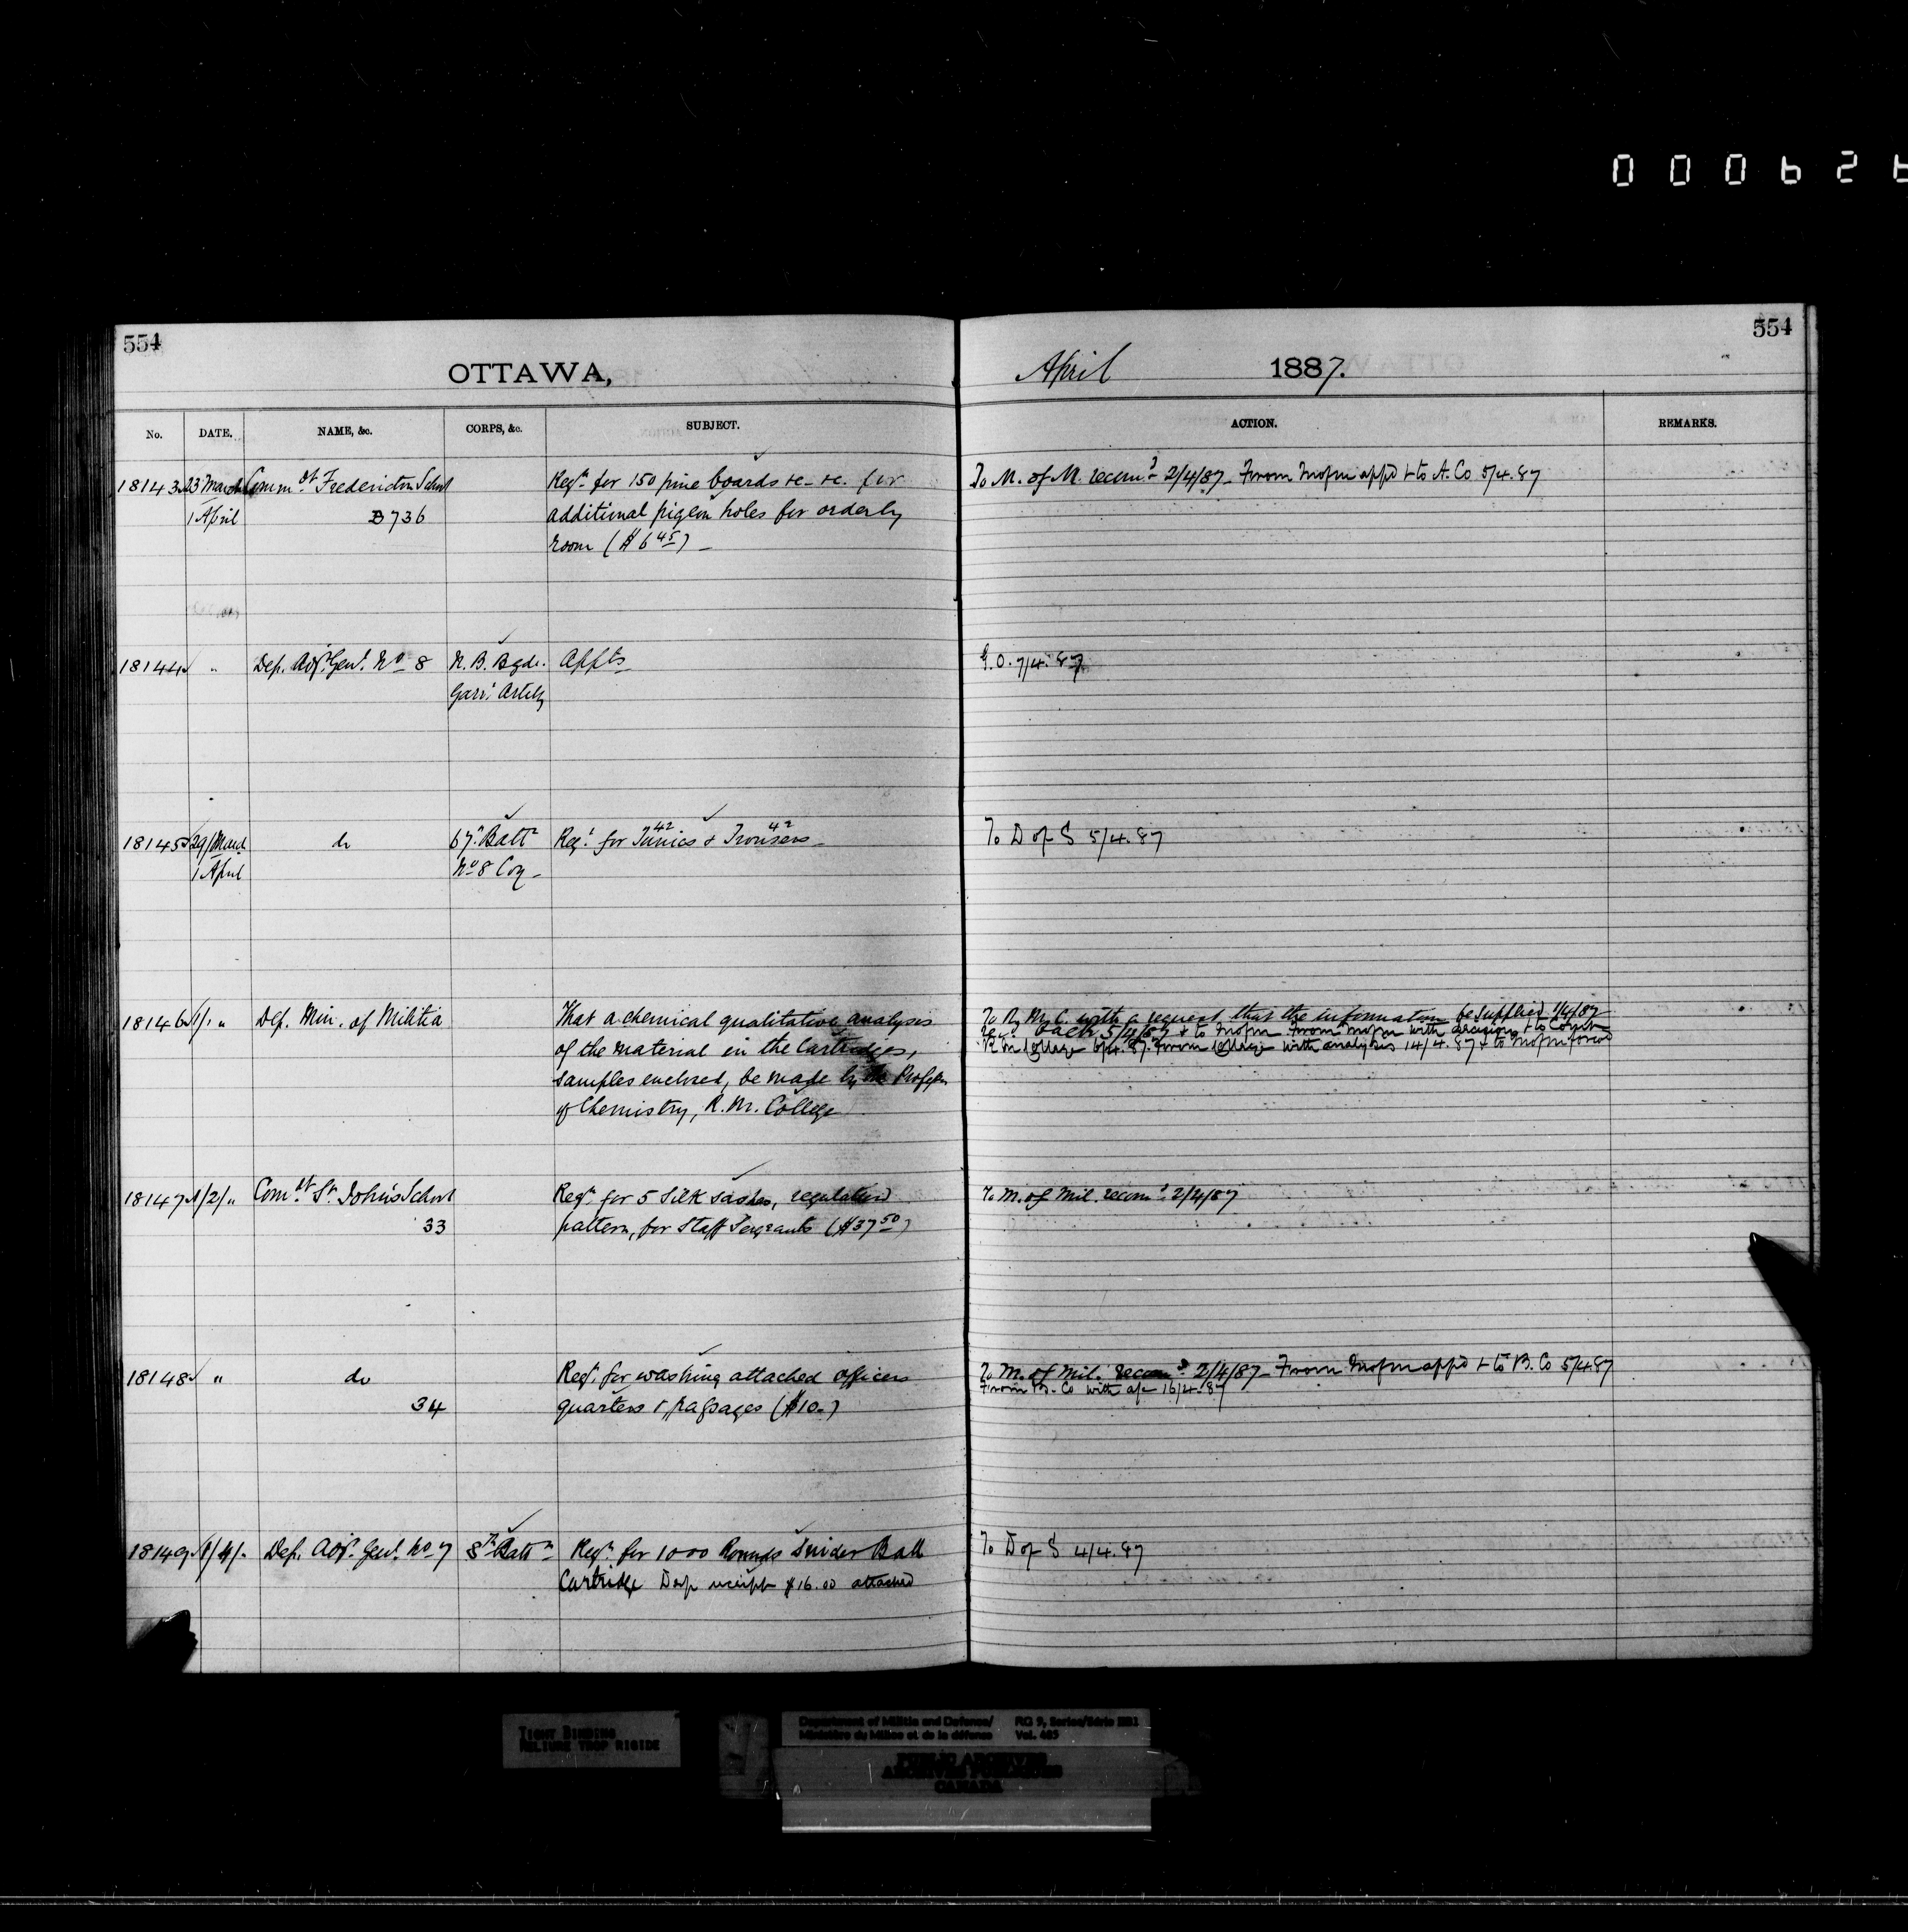 000626
554
554
OTTAWA,
April 1887.
No. DATE. NAME, &c. CORPS, &c. SUBJECT. ACTION. REMARKS.
18143 23 March Comm.dt Fredericton School Reqn for 150 pine boards &c. &c. for To M. of M. recomd 2/4/87 - From M of M appd + to A. Co 5/4.87
1 April B736 additional pigeon holes for orderly
room ($6 45) -
18144 " Dep. Adjt. Genl. No 8 N. B. Bgde. Appts G.O. 7/4.87
Garr. Artily
18145 29/March do 67th Battn Reqn for 42 Tunics & 42 Trousers - To D of S 5/4.87
1 April No 8 Coy -
18146 1/1 " Dep. Min. of Militia That a chemical qualitative analysis To R. M. C. with a request that the information be supplied 1/4/87
of the material in the Cartridges, back 5/4/87 + to M of M From M of M with decision + to Comdt
samples enclosed, be made by the Profesr R M College 6/4.87. From College with analysis 14/4.87 + to M of M
of Chemistry, R. M. College
18147 1/2/" Com.dt St. John's School Reqn for 5 Silk sashes, regulation To M. of Mil. recomd 2/4/87
33 pattern, for Staff Sergeants ($37 50)
18148 " do Reqn for washing attached officers To M. of Mil. recomd 2/4/87 - From M of M appd + to B. Co 5/4.87
34 quarters & passages ($10-) From B. Co with a/c 16/4.87
18149 1/4/" Dep. Adjt. Genl. No 7 8th Battn Reqn for 1000 Rounds Snider Ball To D of S 4/4.87
Cartridge Dep receipt $16.00 attached
TIGHT BINDING
RELIURE TROP RIGIDE
Department of Militia and Defence/ RG 9, Series/Série IIB1
Ministère du Milice et de la défense Vol. 485
PUBLIC ARCHIVES
ARCHIVES PUBLIQUES
CANADA